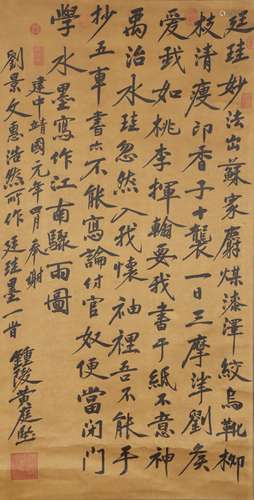 廷珪妙法出蘇家麝煤漆澤紋烏靴柳
枝清瘦印香子十襲一日三摩挲劉侯
愛我如桃李揮翰要我書千紙不意神
禹治水珪忽然入我懷袖裡吾不能手
抄五車書亦不能寫論付官奴便當閉門
學水墨寫作江南驟雨圖
建中靖國元年四月奉謝
劉景文惠浩然所作廷珪墨一首
鍾陵黃庭堅